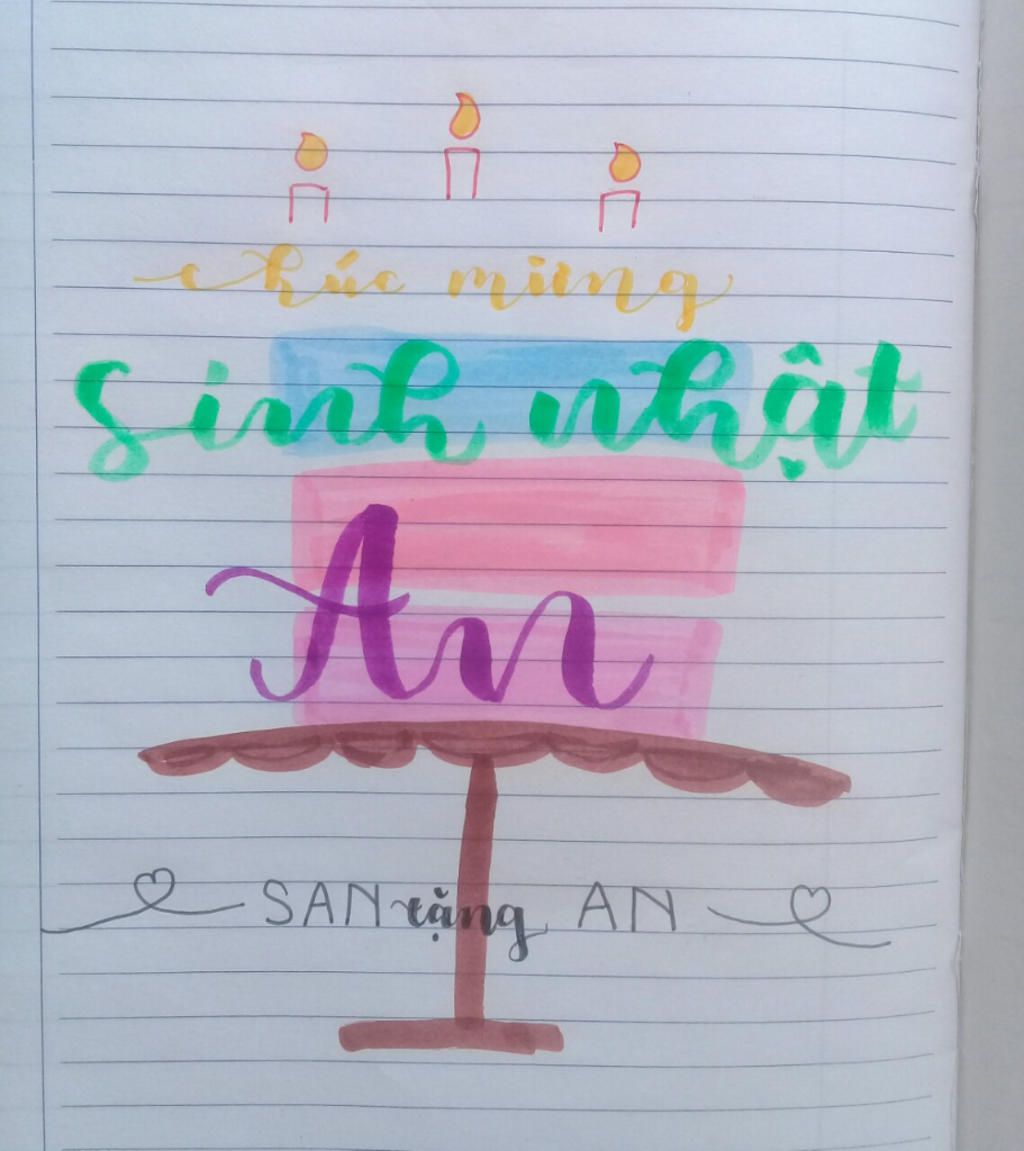 chúc mừng
sinh nhật
An
SAN tặng AN